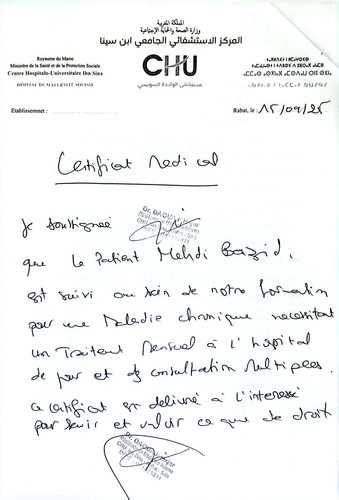 المملكة المغربية
وزارة الصحة والحماية الإجتماعية
المركز الاستشفائي الجامعي ابن سينا
Royaume du Maroc
Ministère de la Santé et de la Protection Sociale
Centre Hospitalo-Universitaire Ibn Sina
HÔPITAL DE MATERNITÉ SOUISSI
CHU
مستشفى الولادة السويسي
Etablissement :
Rabat, le : 15/09/25
Certificat Medical
Je soussignée Dr. DAOUA
que le Patient Mehdi Bazid,
est suivi au sein de notre formation
pour une Maladie chronique necessitant
un Traitent Mensuel à l'hopital
de jour et des consultation Multiples.
ce certificat est delivré à l'interessé
pour servir et valoir ce que de droit
Dr. DAOUA